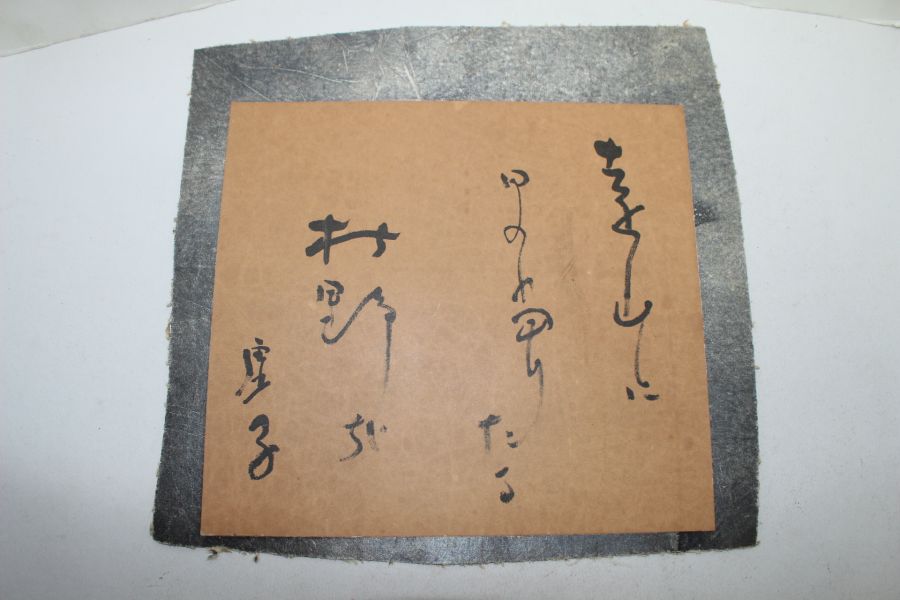 遠山に
日の当りたる
枯野哉
虚子